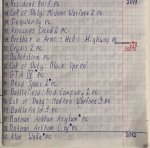 Resident Evil 5 PC
Call of Duty: Modern Warfare 2 PC
Singularity PC
Assassin's Creed 2 PC
Brothers in Arms: Hell's Highway PC
Crysis 2 PC
Bulletstorm PC
Call of Duty: Black Ops PC
GTA IV PC
Dead Space 2 PC
Battlefield: Bad Company 2 PC
Call of Duty: Modern Warfare 3 PC
Battlefield 3 PC
Batman Arkham Asylum PC
Batman Arkham City PC
Alan Wake PC 2012